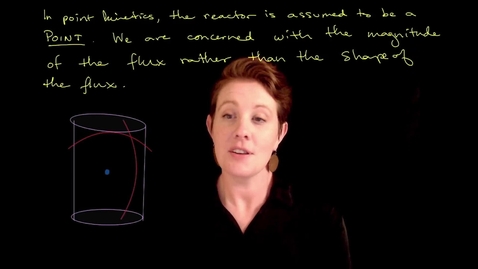 In point kinetics, the reactor is assumed to be a
POINT. We are concerned with the magnitude
of the flux rather than the shape of
the flux.